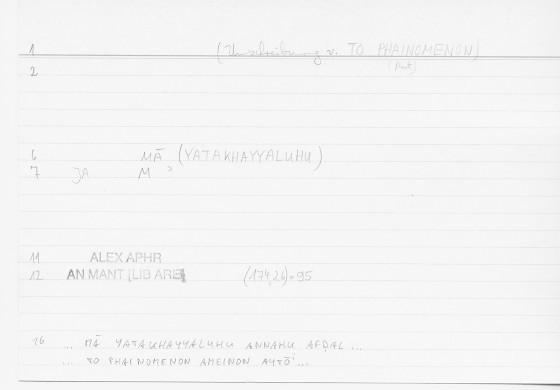 1 (Umschreibung v. TO PHAINOMENON)
2 (Part)
6 MĀ (YATAKHAYYALUHU)
7 JA M
11 ALEX APHR
12 AN MANT (LIB ARB) (174,26)=95
16 ... MĀ YATAKHAYYALUHU ANNAHU AFḌAL ...
... TO PHAINOMENON AMEINON AYTŌ ...